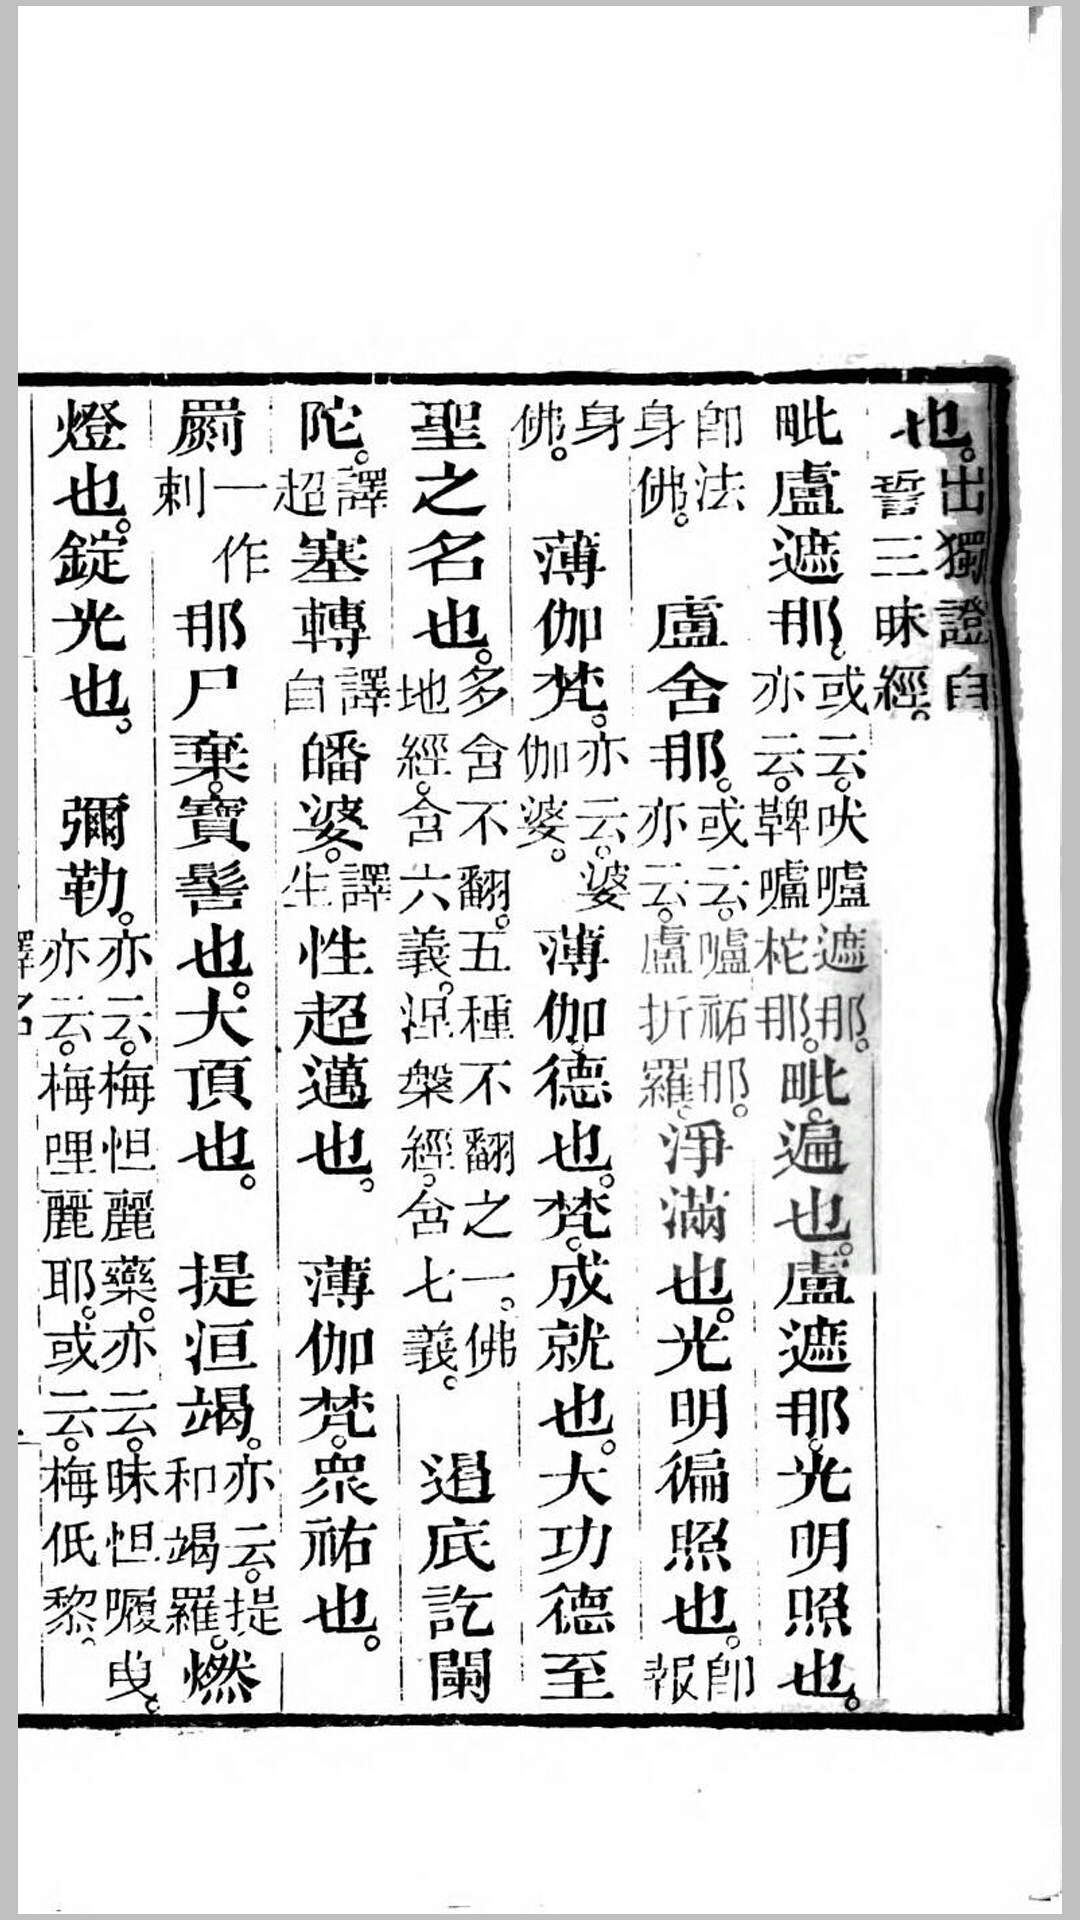 也。出獨證自誓三昧經。
毗盧遮那。或云。吠嚧遮那。亦云。鞞嚧柁那。毗。遍也。盧遮那。光明照也。
卽法身佛。 盧舍那。或云。嚧祏那。亦云。盧折羅。淨滿也。光明徧照也。卽報
身佛。 薄伽梵。亦云。婆伽婆。 薄伽。德也。梵。成就也。大功德至
聖之名也。多含不翻。五種不翻之一。佛地經。含六義。涅槃經。含七義。 遏底訖闌
陀。譯超塞轉譯自皤婆。譯生性超邁也。 薄伽梵。衆祐也。
罽一作剌那尸棄。寶髻也。大頂也。 提洹竭。亦云。提和竭羅。燃
燈也。錠光也。 彌勒。亦云。梅怛麗藥。亦云。昧怛囇曳。亦云。梅哩麗耶。或云。梅低黎。
譯名